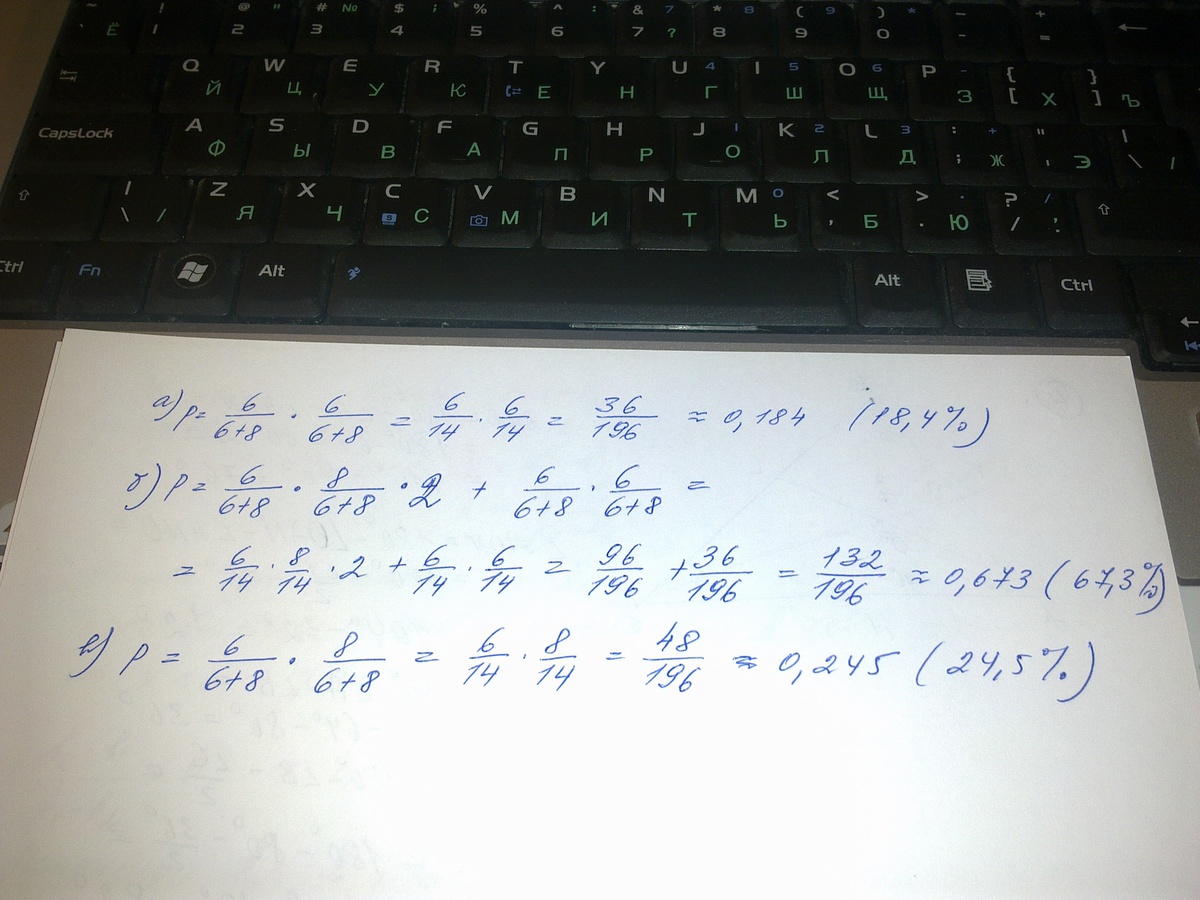 ~ ! @ " # № $ ; % ^ : & 7 * 8 ( 9 ) * _ +
` Ё 1 2 3 4 5 6 7 ? 8 9 0 - = ←
Q Й W Ц E У R К T Е Y Н U 4 Г I 5 Ш O 6 Щ P - З { [ Х } ] Ъ
CapsLock A Ф S Ы D В F А G П H Р J 1 О K 2 Л L 3 Д : + ; Ж " ' Э | \ /
⇧ | \ / Z Я X Ч C С V М B И N Т M 0 Ь < , Б > . . Ю ? / / , ⇧
Ctrl Fn Alt Alt Ctrl ←
а) p = 6/(6+8) · 6/(6+8) = 6/14 · 6/14 = 36/196 ≈ 0,184 (18,4%)
б) p = 6/(6+8) · 8/(6+8) · 2 + 6/(6+8) · 6/(6+8) =
= 6/14 · 8/14 · 2 + 6/14 · 6/14 = 96/196 + 36/196 = 132/196 ≈ 0,673 (67,3%)
в) p = 6/(6+8) · 8/(6+8) = 6/14 · 8/14 = 48/196 ≈ 0,245 (24,5%)